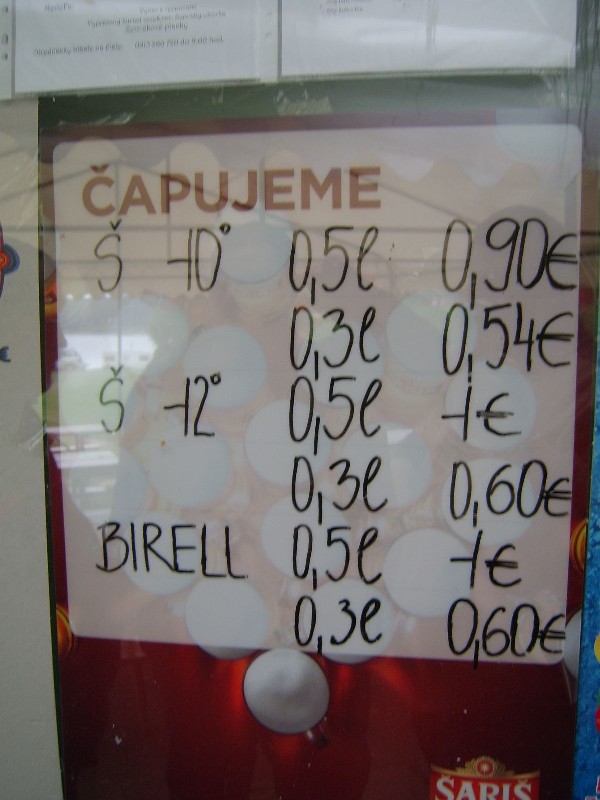 ČAPUJEME
Š 10° 0,5l 0,90€
0,3l 0,54€
Š 12° 0,5l 1€
0,3l 0,60€
BIRELL 0,5l 1€
0,3l 0,60€
ŠARIŠ